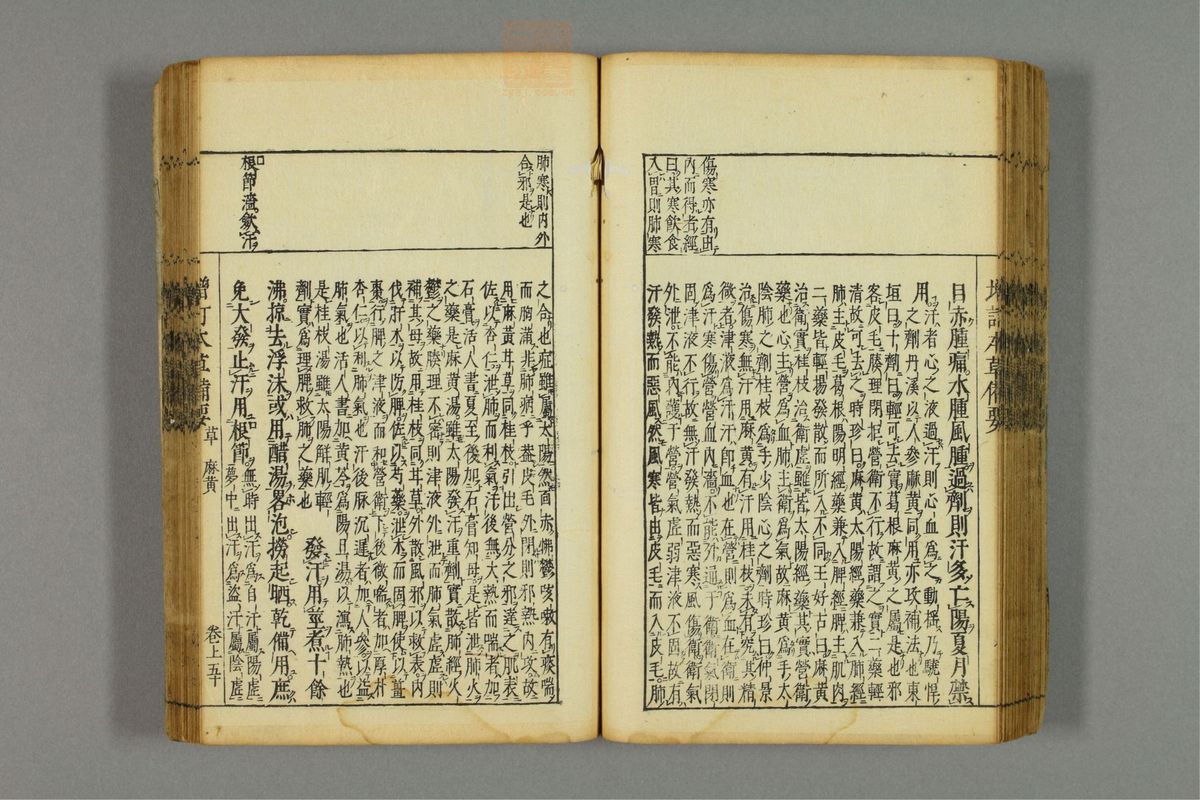 傷寒亦有由
內而得者經
曰其寒飲食
入胃則肺寒
目赤腫痛水腫風腫過劑則汗多亡陽夏月禁
用汗者心之液過汗則心血爲之動搖乃驍悍
之劑丹溪以人參麻黃同用亦攻補法也東
垣曰十劑曰輕可去實葛根麻黃之屬是也邪
客皮毛腠理閉拒營衛不行故謂之實二藥輕
清故可去之時珍曰麻黃太陽經藥兼入肺經
肺主皮毛葛根陽明經藥兼入脾經脾主肌肉
二藥皆輕揚發散而所入不同王好古曰麻黃
治衛實桂枝治衛虛雖皆太陽經藥其實營衛
藥也心主營爲血肺主衛爲氣故麻黃爲手太
陰肺之劑桂枝爲手少陰心之劑時珍曰仲景
治傷寒無汗用麻黃有汗用桂枝未有究其精
微者津液爲汗汗卽血也在營則爲血在衛則
爲汗寒傷營營血內濇不能外通于衛衛氣閉
固津液不行故無汗發熱而惡寒風傷衛衛氣
外泄不能內護于營營氣虛弱津液不固故有
汗發熱而惡風然風寒皆由皮毛而入皮毛肺
肺寒則內外
合邪是也
之合也症雖屬太陽然面赤怫鬱咳嗽有痰喘
而胸滿非肺病乎蓋皮毛外閉則邪熱內攻故
用麻黃甘草同桂枝引出營分之邪達之肌表
佐以杏仁泄肺而利氣汗後無大熱而喘者加
石膏活人書夏至後加石膏知母是皆泄肺火
之藥是麻黃湯雖太陽發汗重劑實散肺經火
鬱之藥腠理不密則津液外泄而肺氣虛虛則
補其母故用桂枝同甘草外散風邪以救表內
伐肝木以防脾佐以芍藥泄木而固脾使以薑
棗行脾之津液而和營衛下後微喘者加厚朴
杏仁以利肺氣也汗後脉沉遲者加人參以益
肺氣也活人書加黃芩爲陽旦湯以瀉肺熱也
是桂枝湯雖太陽解肌輕
劑實爲理脾救肺之藥也
發汗用莖煮十餘
沸掠去浮沫或用醋湯畧泡撈起晒乾備用庶
免大發止汗用根節無時出汗爲自汗屬陽虛
夢中出汗爲盜汗屬陰虛
根節濇斂汗
增訂本草備要 草 麻黃 卷上五十